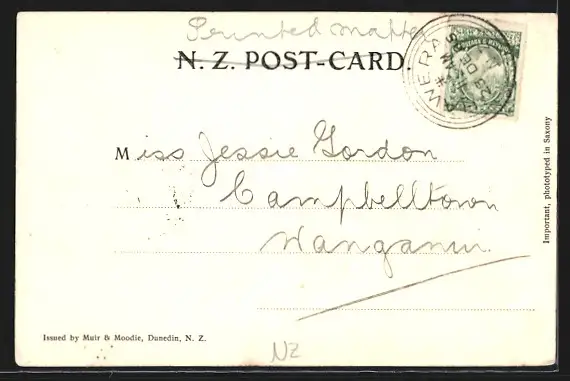 Printed matter
N. Z. POST-CARD.
HAWERA
23 DE
Miss Jessie Gordon
Campbelltown
Wanganui.
Issued by Muir & Moodie, Dunedin, N. Z.
NZ
Important, phototyped in Saxony